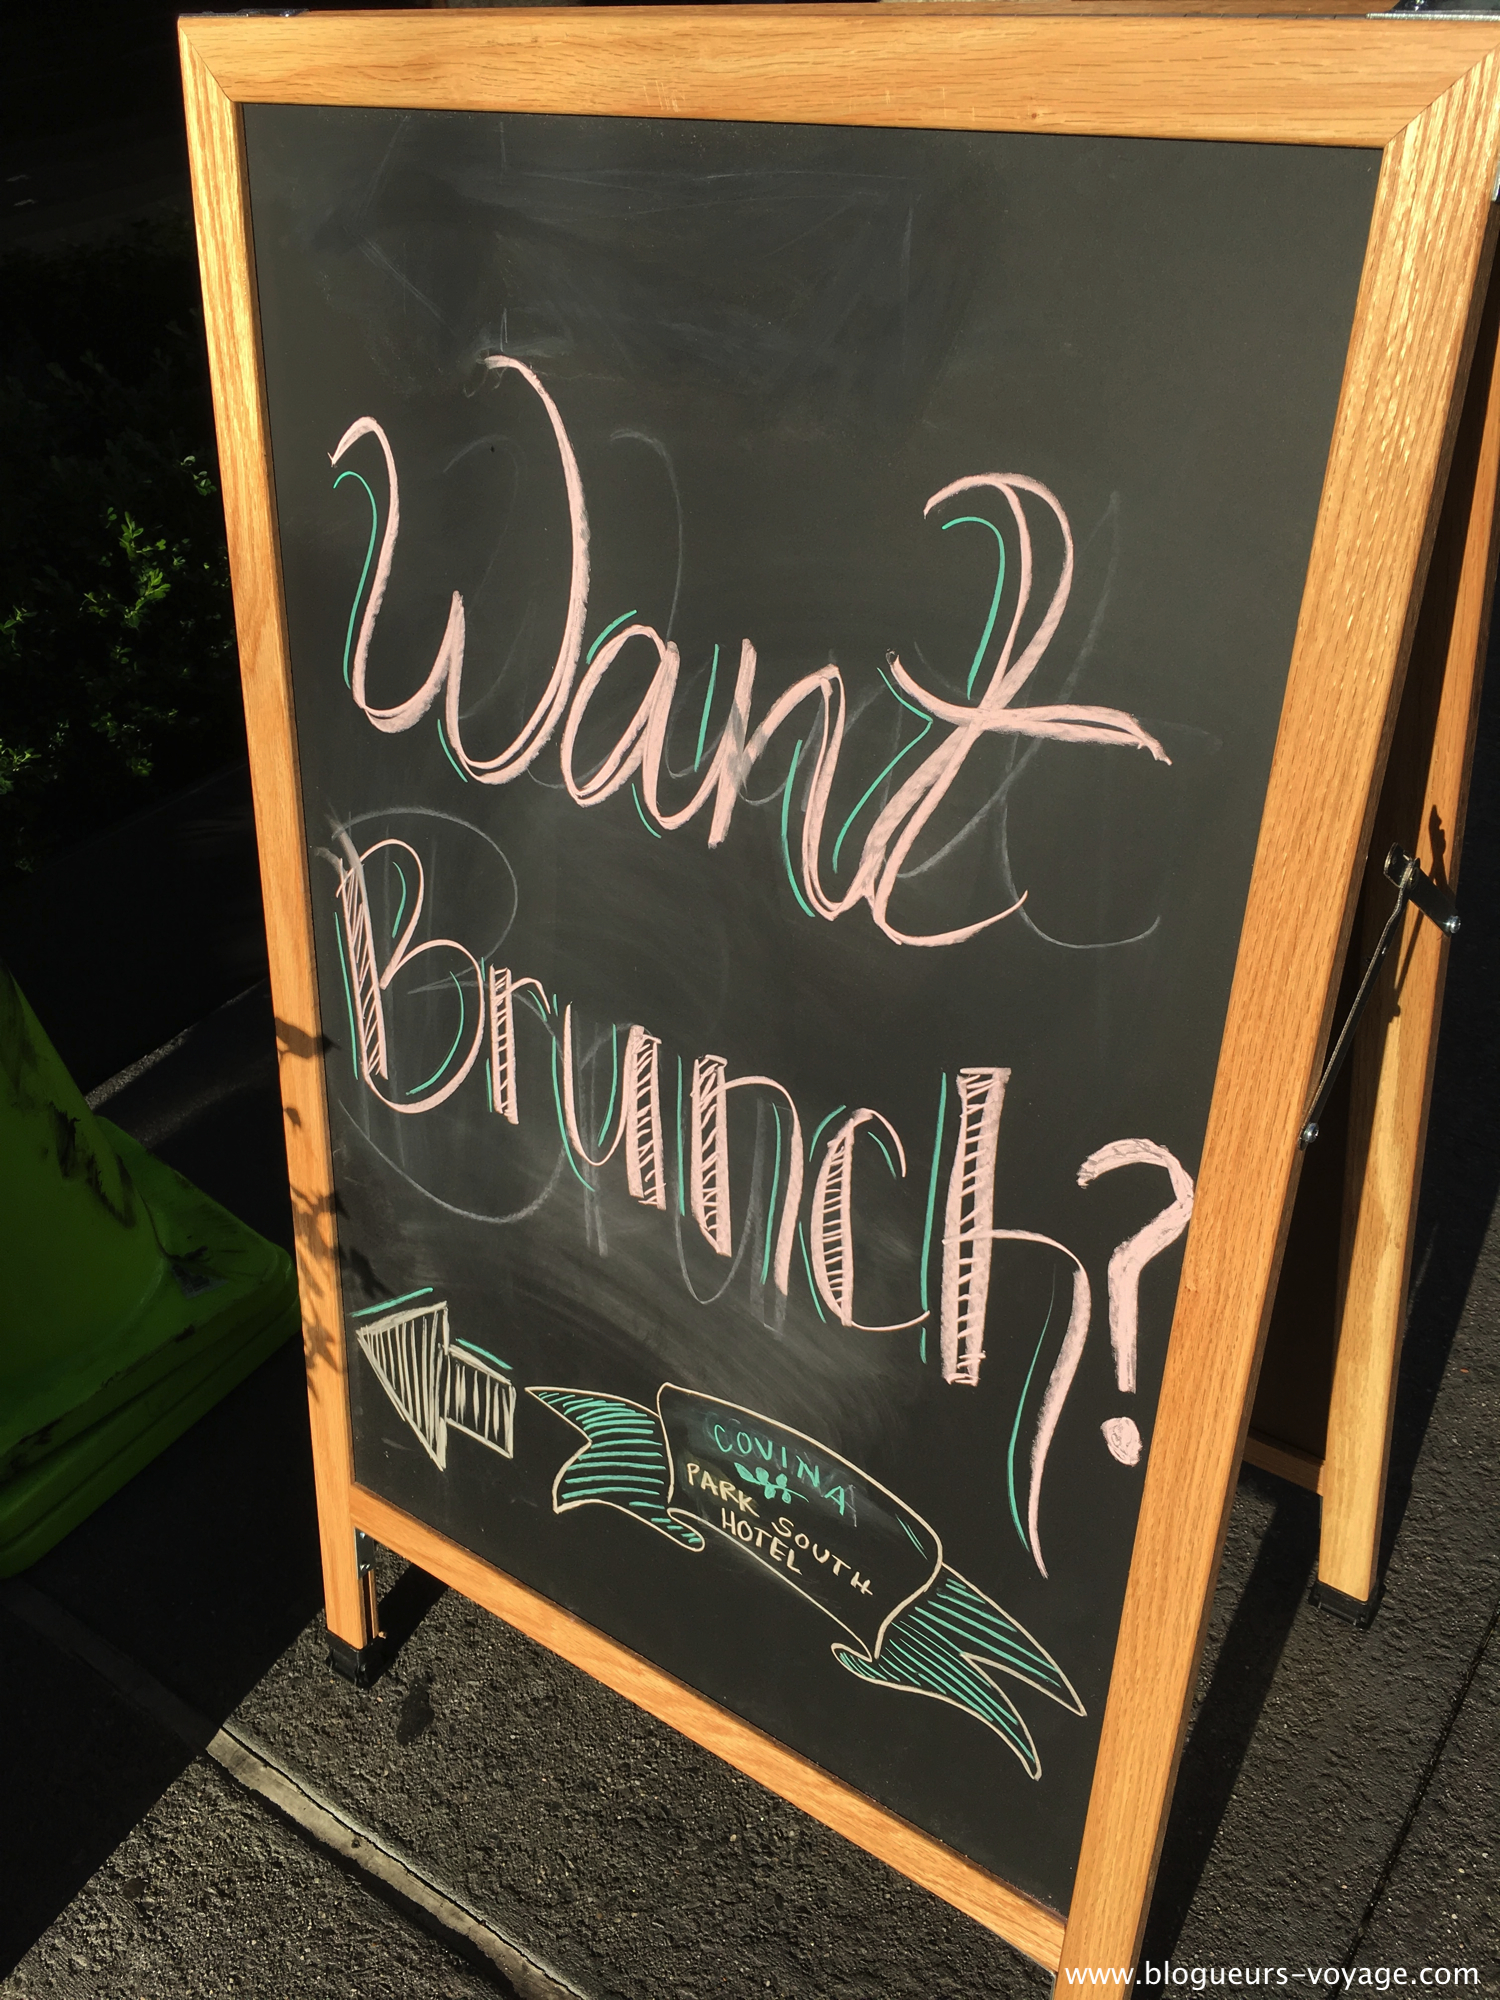 Want
Brunch?
COVINA
PARK SOUTH
HOTEL
www.blogueurs-voyage.com